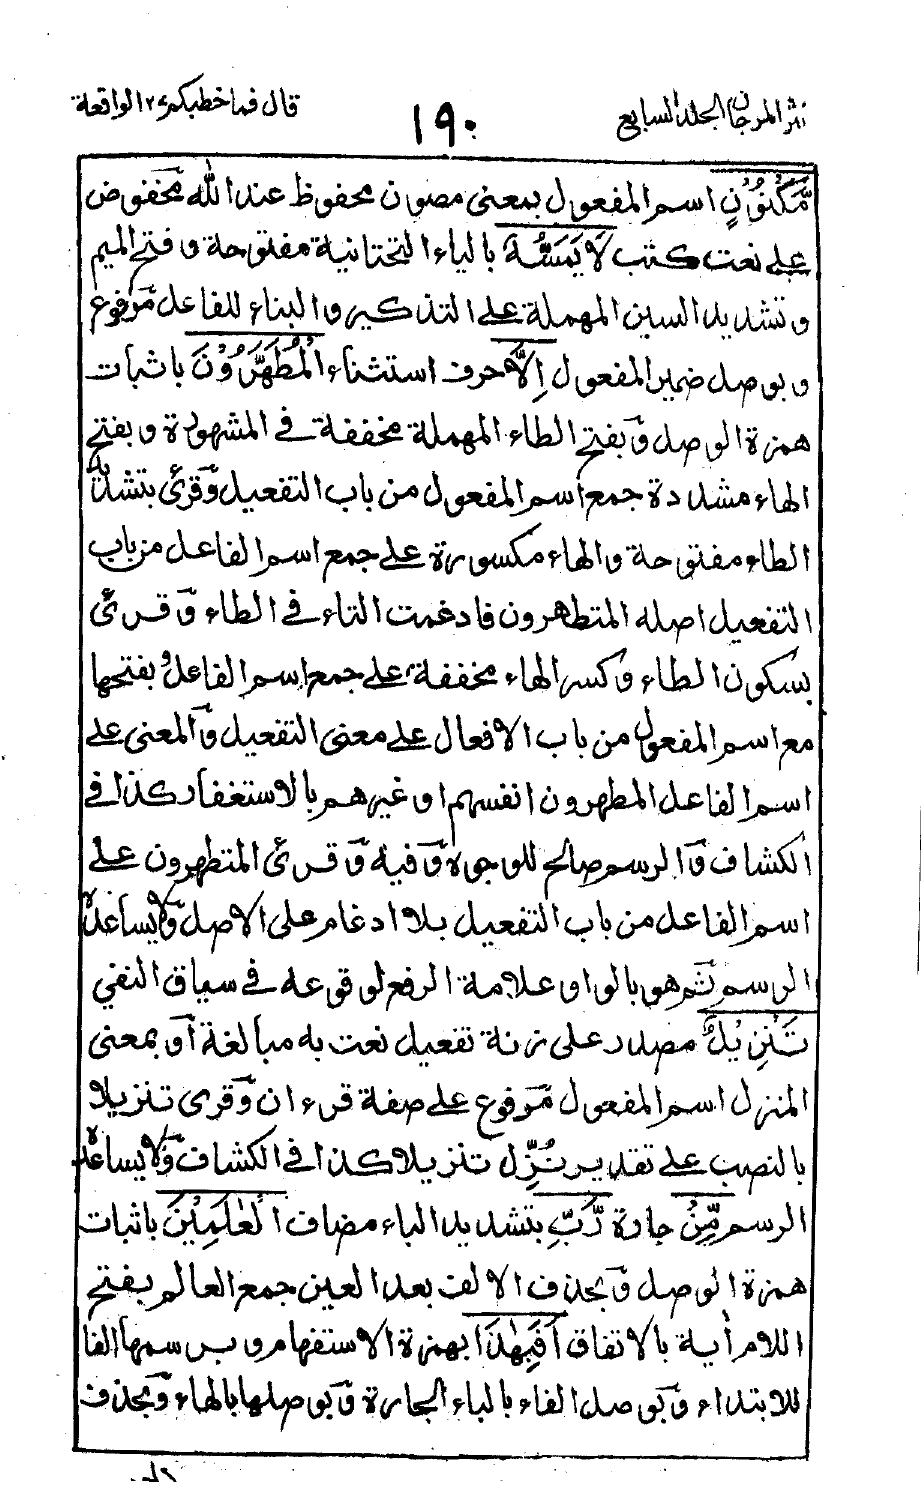 نثر المرجان الجلد السابع
١٩٠
قال فما خطبكم ٢٧ الواقعة
مَّكْنُوْنٍ اسم المفعول بمعنى مصون محفوظ عند الله مخفوض
على نعت كتب لَا يَمَسُّهٗ بالياء التحتانية مفتوحة و فتح الميم
و تشديد السين المهملة على التذكير و البناء للفاعل مرفوع
و بوصل ضمير المفعول اِلَّا حرف استثناء الْمُطَهَّرُوْنَ باثبات
همزة الوصل و بفتح الطاء المهملة مخففة في المشهورة و بفتح
الهاء مشددة جمع اسم المفعول من باب التفعيل و قرئ بتشديد
الطاء مفتوحة و الهاء مكسورة على جمع اسم الفاعل من باب
التفعيل اصله المتطهرون فادغمت التاء في الطاء و قرئ
بسكون الطاء و كسر الهاء مخففة على جمع اسم الفاعل و بفتحها
مع اسم المفعول من باب الافعال على معنى التفعيل و المعنى على
اسم الفاعل المطهرون انفسهم او غيرهم بالاستغفار كذا في
الكشاف و الرسم صالح للوجوه و فيه و قرئ المتطهرون على
اسم الفاعل من باب التفعيل بلا ادغام على الاصل و لا يساعده
الرسم ثم هو بالواو علامة الرفع لوقوعه في سياق النفي
تَنْزِيْلٌ مصدر على زنة تفعيل نعت به مبالغة او بمعنى
المنزل اسم المفعول مرفوع على صفة قرءان و قرى تنزيلا
بالنصب على تقدير نُزِّل تنزيلا كذا في الكشاف و لا يساعده
الرسم مِّنْ جارة رَّبِّ بتشديد الباء مضاف الْعٰلَمِيْنَ باثبات
همزة الوصل و بحذف الالف بعد العين جمع العالم بفتح
اللام أية بالاتفاق اَفَبِهٰذَا بهمزة الاستفهام و برسمها الفا
للابتداء و بوصل الفاء بالباء الجارة و بوصلها بالهاء و بحذف